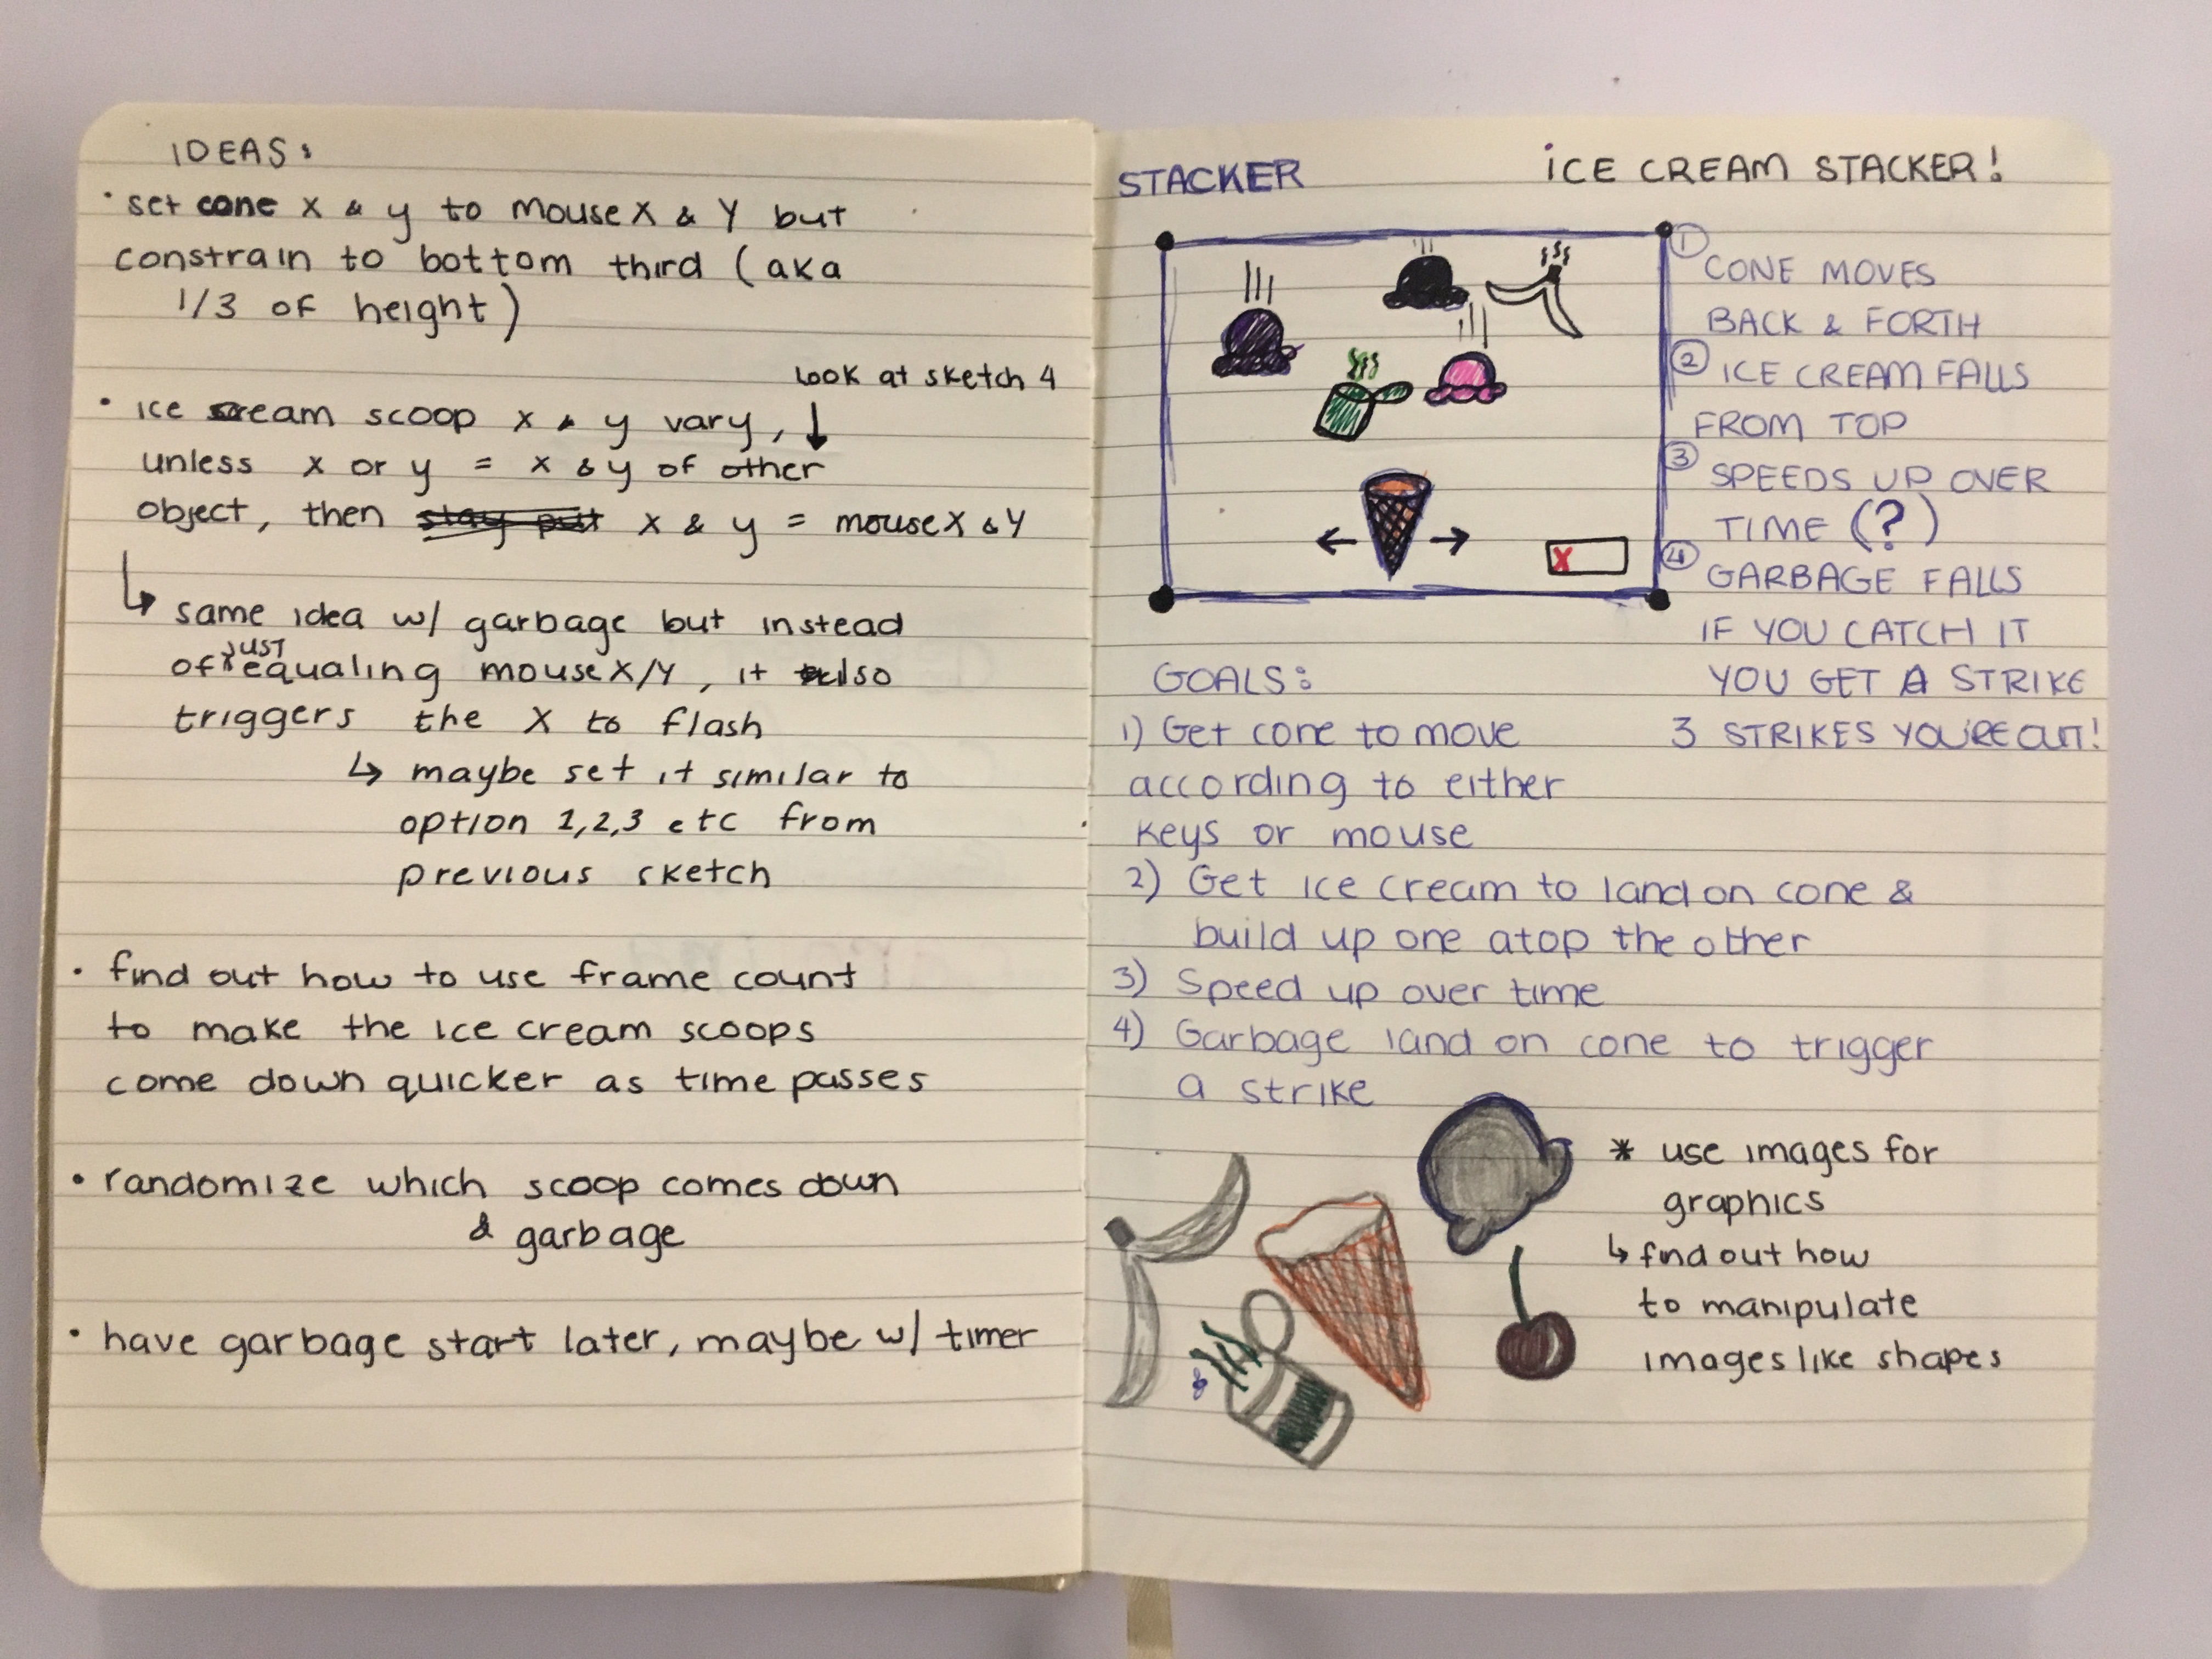 IDEAS:
• set cone x & y to mouseX & Y but
constrain to bottom third (aka
1/3 of height)
look at sketch 4
• ice cream scoop x & y vary, ↓
unless x or y = x & y of other
object, then stay put x & y = mouseX & Y
↳ same idea w/ garbage but instead
of just equaling mouseX/Y, it also
triggers the X to flash
↳ maybe set it similar to
option 1,2,3 etc from
previous sketch
• find out how to use frame count
to make the ice cream scoops
come down quicker as time passes
• randomize which scoop comes down
& garbage
• have garbage start later, maybe w/ timer
STACKER
ICE CREAM STACKER!
① CONE MOVES
BACK & FORTH
② ICE CREAM FALLS
FROM TOP
③ SPEEDS UP OVER
TIME (?)
④ GARBAGE FALLS
IF YOU CATCH IT
YOU GET A STRIKE
3 STRIKES YOU'RE OUT!
X
GOALS:
1) Get cone to move
according to either
keys or mouse
2) Get ice cream to land on cone &
build up one atop the other
3) Speed up over time
4) Garbage land on cone to trigger
a strike
* use images for
graphics
↳ find out how
to manipulate
images like shapes